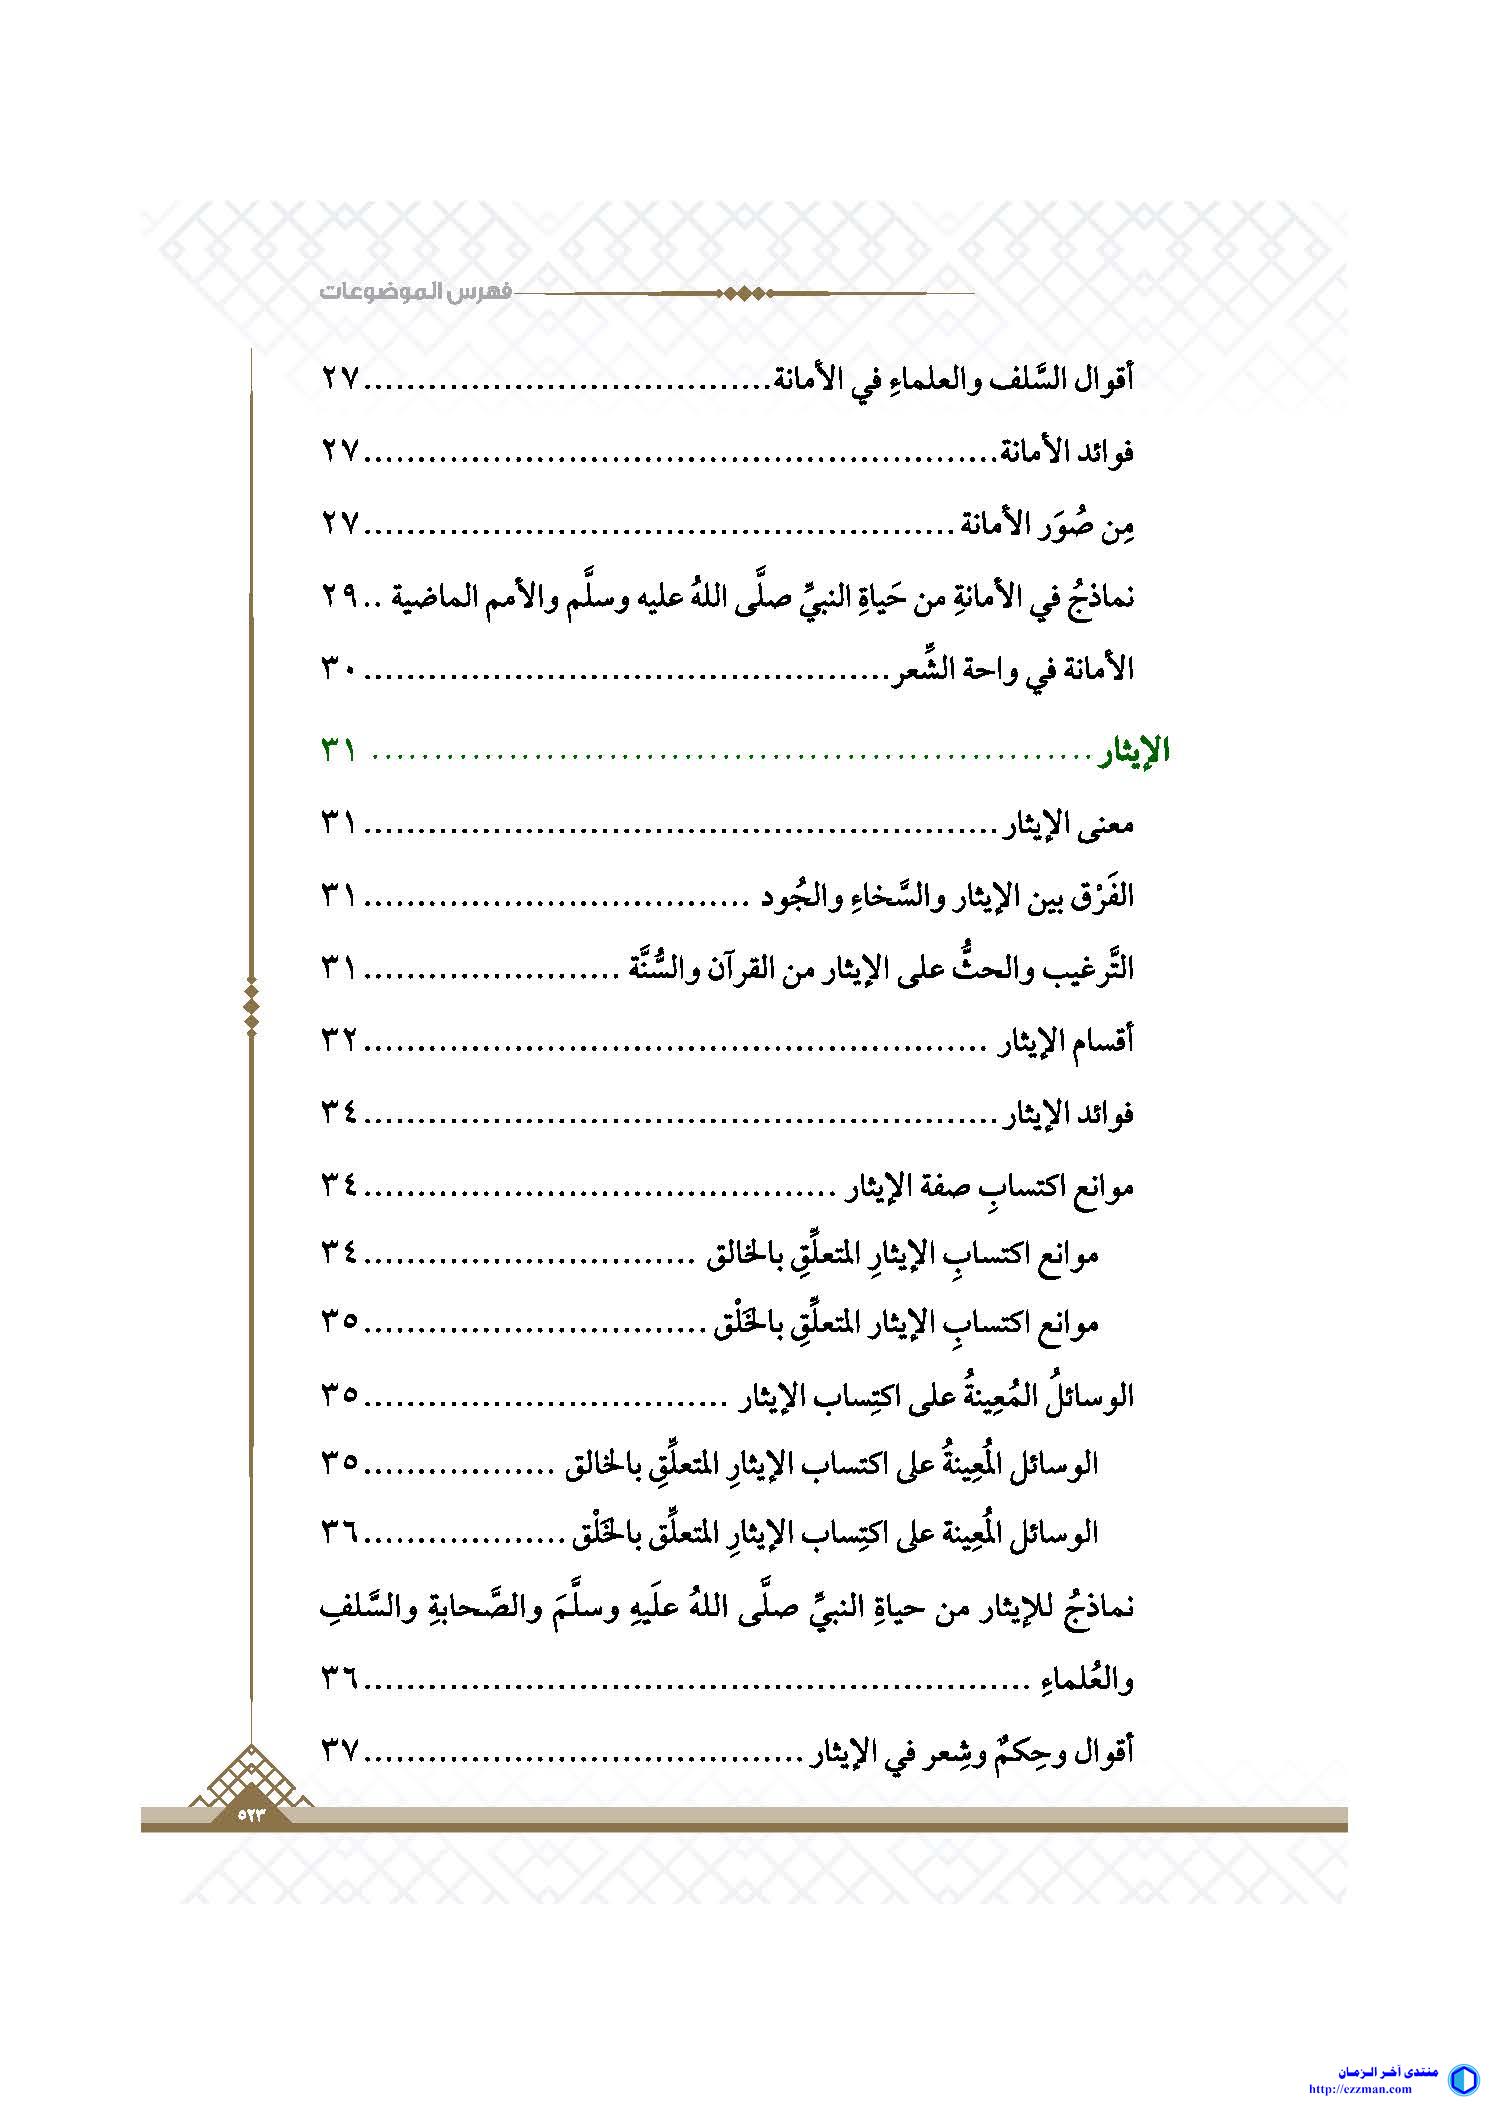 فهرس الموضوعات
أقوال السَّلف والعلماءِ في الأمانة......................................٢٧
فوائد الأمانة...........................................................٢٧
مِن صُوَر الأمانة.......................................................٢٧
نماذجُ في الأمانةِ من حَياةِ النبيِّ صلَّى اللهُ عليه وسلَّم والأمم الماضية ..٢٩
الأمانة في واحة الشِّعر.................................................٣٠
الإيثار.......................................................... ٣١
معنى الإيثار...........................................................٣١
الفَرْق بين الإيثار والسَّخاءِ والجُود ....................................٣١
التَّرغيب والحثُّ على الإيثار من القرآن والسُّنَّة ........................٣١
أقسام الإيثار ..........................................................٣٢
فوائد الإيثار...........................................................٣٤
موانع اكتسابِ صفة الإيثار ............................................٣٤
موانع اكتسابِ الإيثارِ المتعلِّقِ بالخالق ...............................٣٤
موانع اكتسابِ الإيثار المتعلِّقِ بالخَلْق................................٣٥
الوسائلُ المُعِينةُ على اكتِساب الإيثار ..................................٣٥
الوسائل المُعِينةُ على اكتساب الإيثارِ المتعلِّقِ بالخالق ..................٣٥
الوسائل المُعِينة على اكتِساب الإيثارِ المتعلِّق بالخَلْق...................٣٦
نماذجُ للإيثار من حياةِ النبيِّ صلَّى اللهُ علَيهِ وسلَّمَ والصَّحابةِ والسَّلفِ
والعُلماءِ ..............................................................٣٦
أقوال وحِكمٌ وشِعر في الإيثار.........................................٣٧
٥٢٣
منتدى آخر الزمان
http://ezzman.com